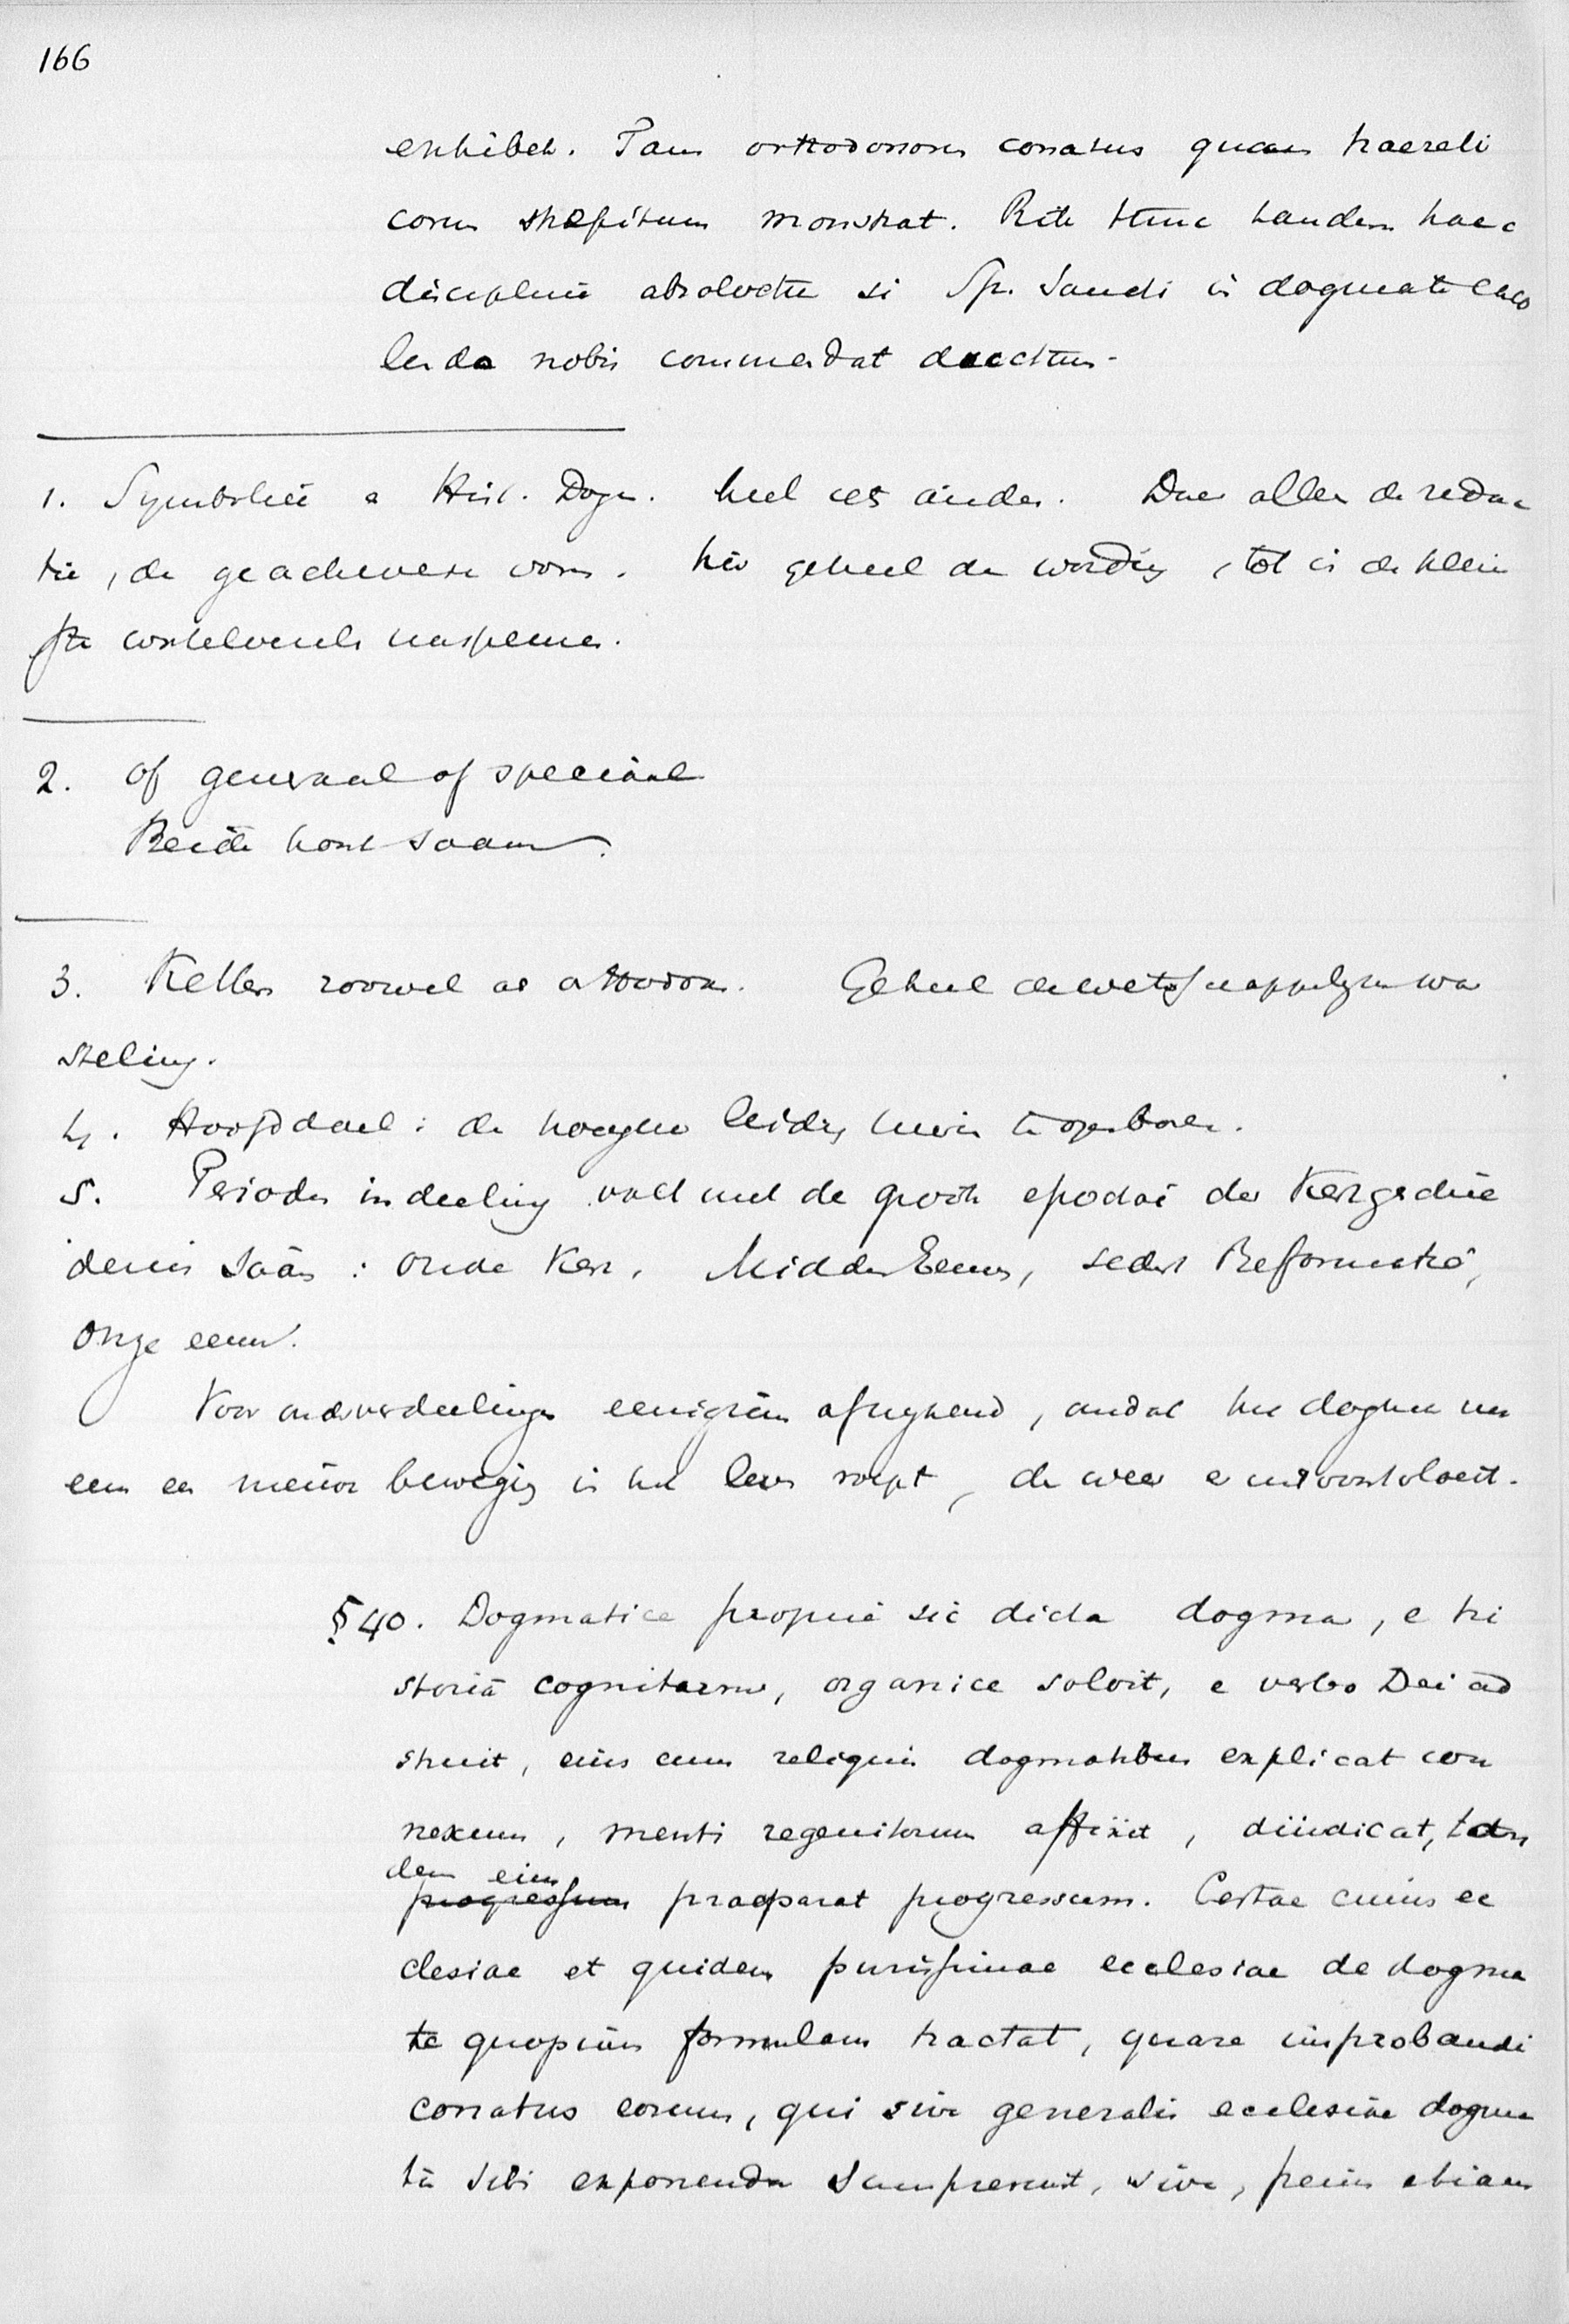 166
exhibet. Tam orthodoxorum conatus quam haereti
corum strepitum monstrat. Rite tunc tandem haec
disciplina absolvetur si Sp. Sancti in dogmate exco
lendo nobis commendat ductum.
1. Symboliek e Hist. Dogm. heel iets anders. Daar alleen de redac
tie, de geacheveerde vorm. hier geheel de wording, tot in de klein
ste worstelvezels naspeuren.
2. of generaal of speciaal
Beide hoort saam.
3. Ketters zoowel als orthodox. Geheel de wetenschappelijke wor
steling.
4. Hoofddoel: de hoogere leiding hierin te openbaren.
5. Perioden indeeling valt met de groote epochai der Kerkgeschie
denis saâm: Oude Kerk, Midden Eeuwen, sedert Reformatie,
onze eeuw.
Voor onderverdeelingen eenigszins afwijkend, omdat het dogma nu
eens een nieuwe beweging in het leven roept, dan weer er uit voortvloeit.
§ 40. Dogmatice proprie sic dicta dogma, e hi
storia cognitum, organice solvit, e verbo Dei ad
struit, eius cum reliquis dogmatibus explicat con
nexum, menti regenitorum affixit, diiudicat, tan
dem eius
progressum praeparat progressum. Certae cuius ec
clesiae et quidem purissimae ecclesiae de dogma
te quopiam formulam tractat, quare improbandi
conatus eorum, qui sive generalis ecclesiae dogma
ta sibi exponenda sumpserunt, sive, peius etiam